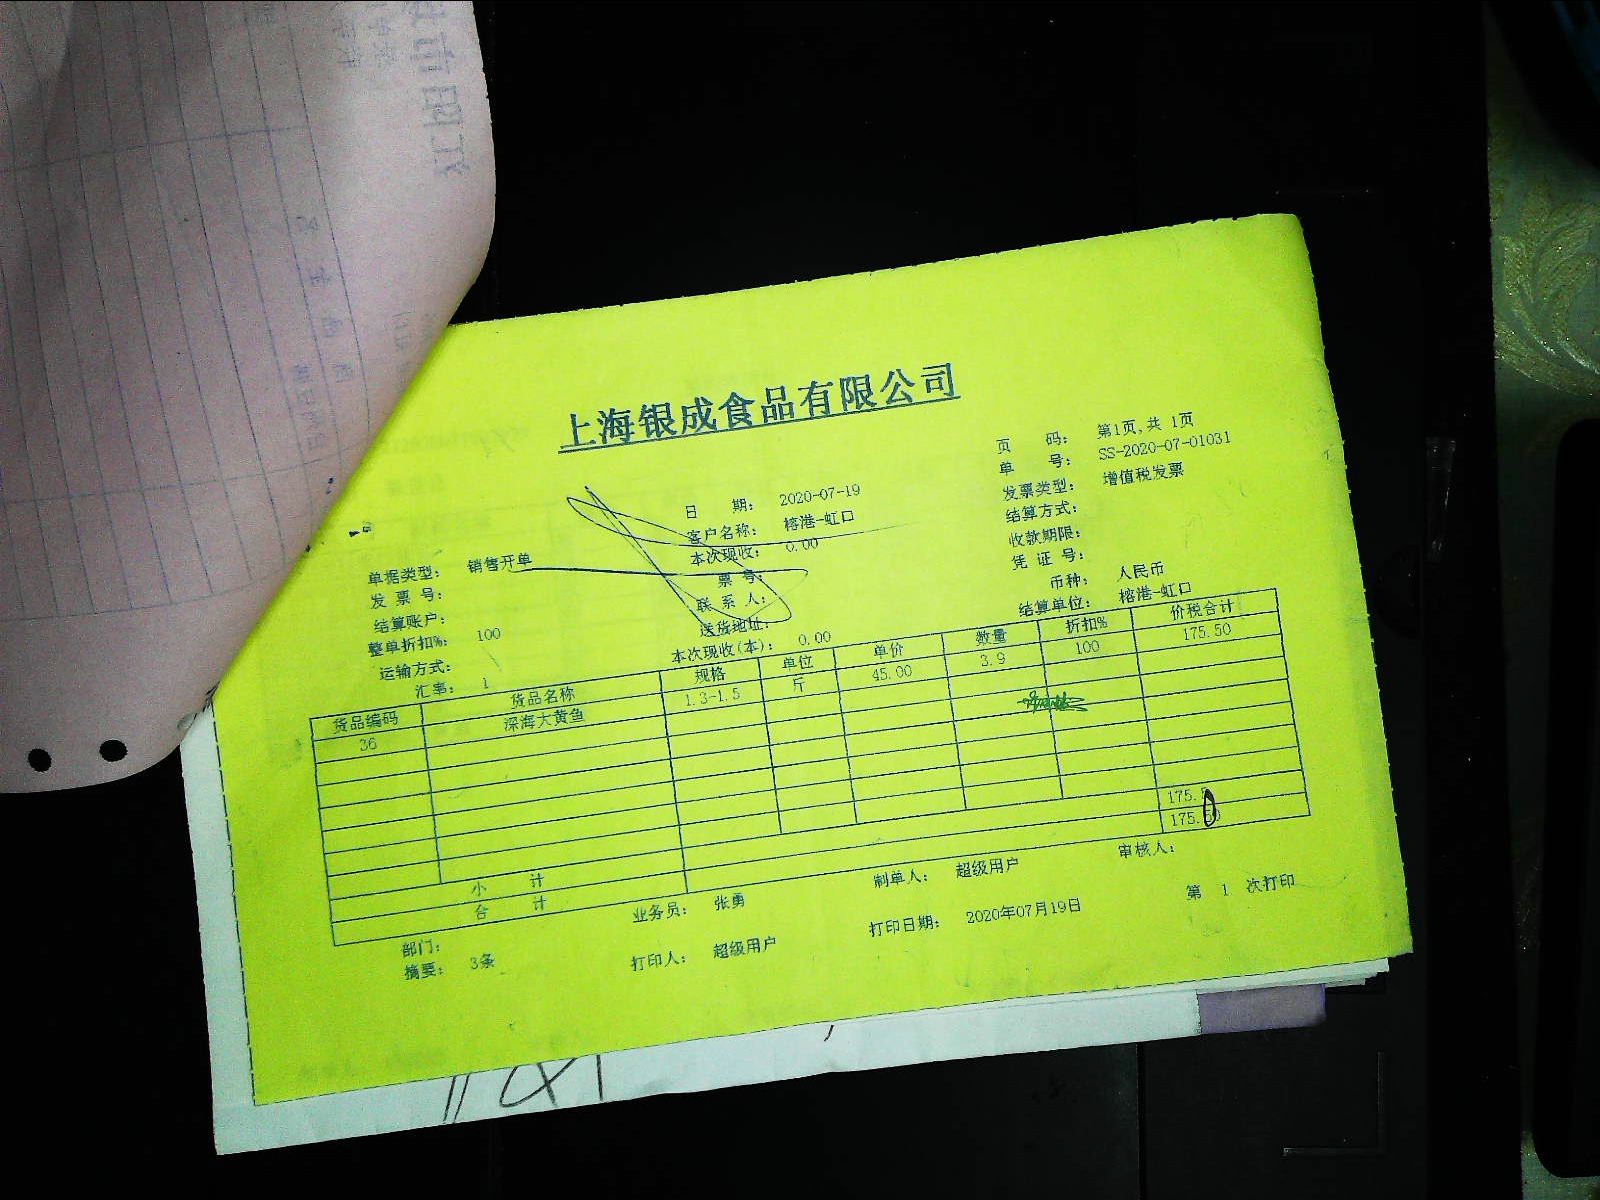 上海银成食品有限公司
页 码: 第1页,共 1页
单 号: SS-2020-07-01031
日 期: 2020-07-19
发票类型: 增值税发票
客户名称: 榕港-虹口
结算方式:
单据类型: 销售开单
本次现收: 0.00
收款期限:
发 票 号:
票 号:
凭 证 号:
结算账户:
联 系 人:
币种: 人民币
整单折扣%: 100
送货地址:
结算单位: 榕港-虹口
运输方式:
本次现收(本): 0.00
汇率: 1
货品编码 货品名称 规格 单位 单价 数量 折扣% 价税合计
36 深海大黄鱼 1.3-1.5 斤 45.00 3.9 100 175.50
小 计 175.5
合 计 175.50
部门: 业务员: 张勇 制单人: 超级用户 审核人:
摘要: 3条 打印人: 超级用户 打印日期: 2020年07月19日 第 1 次打印